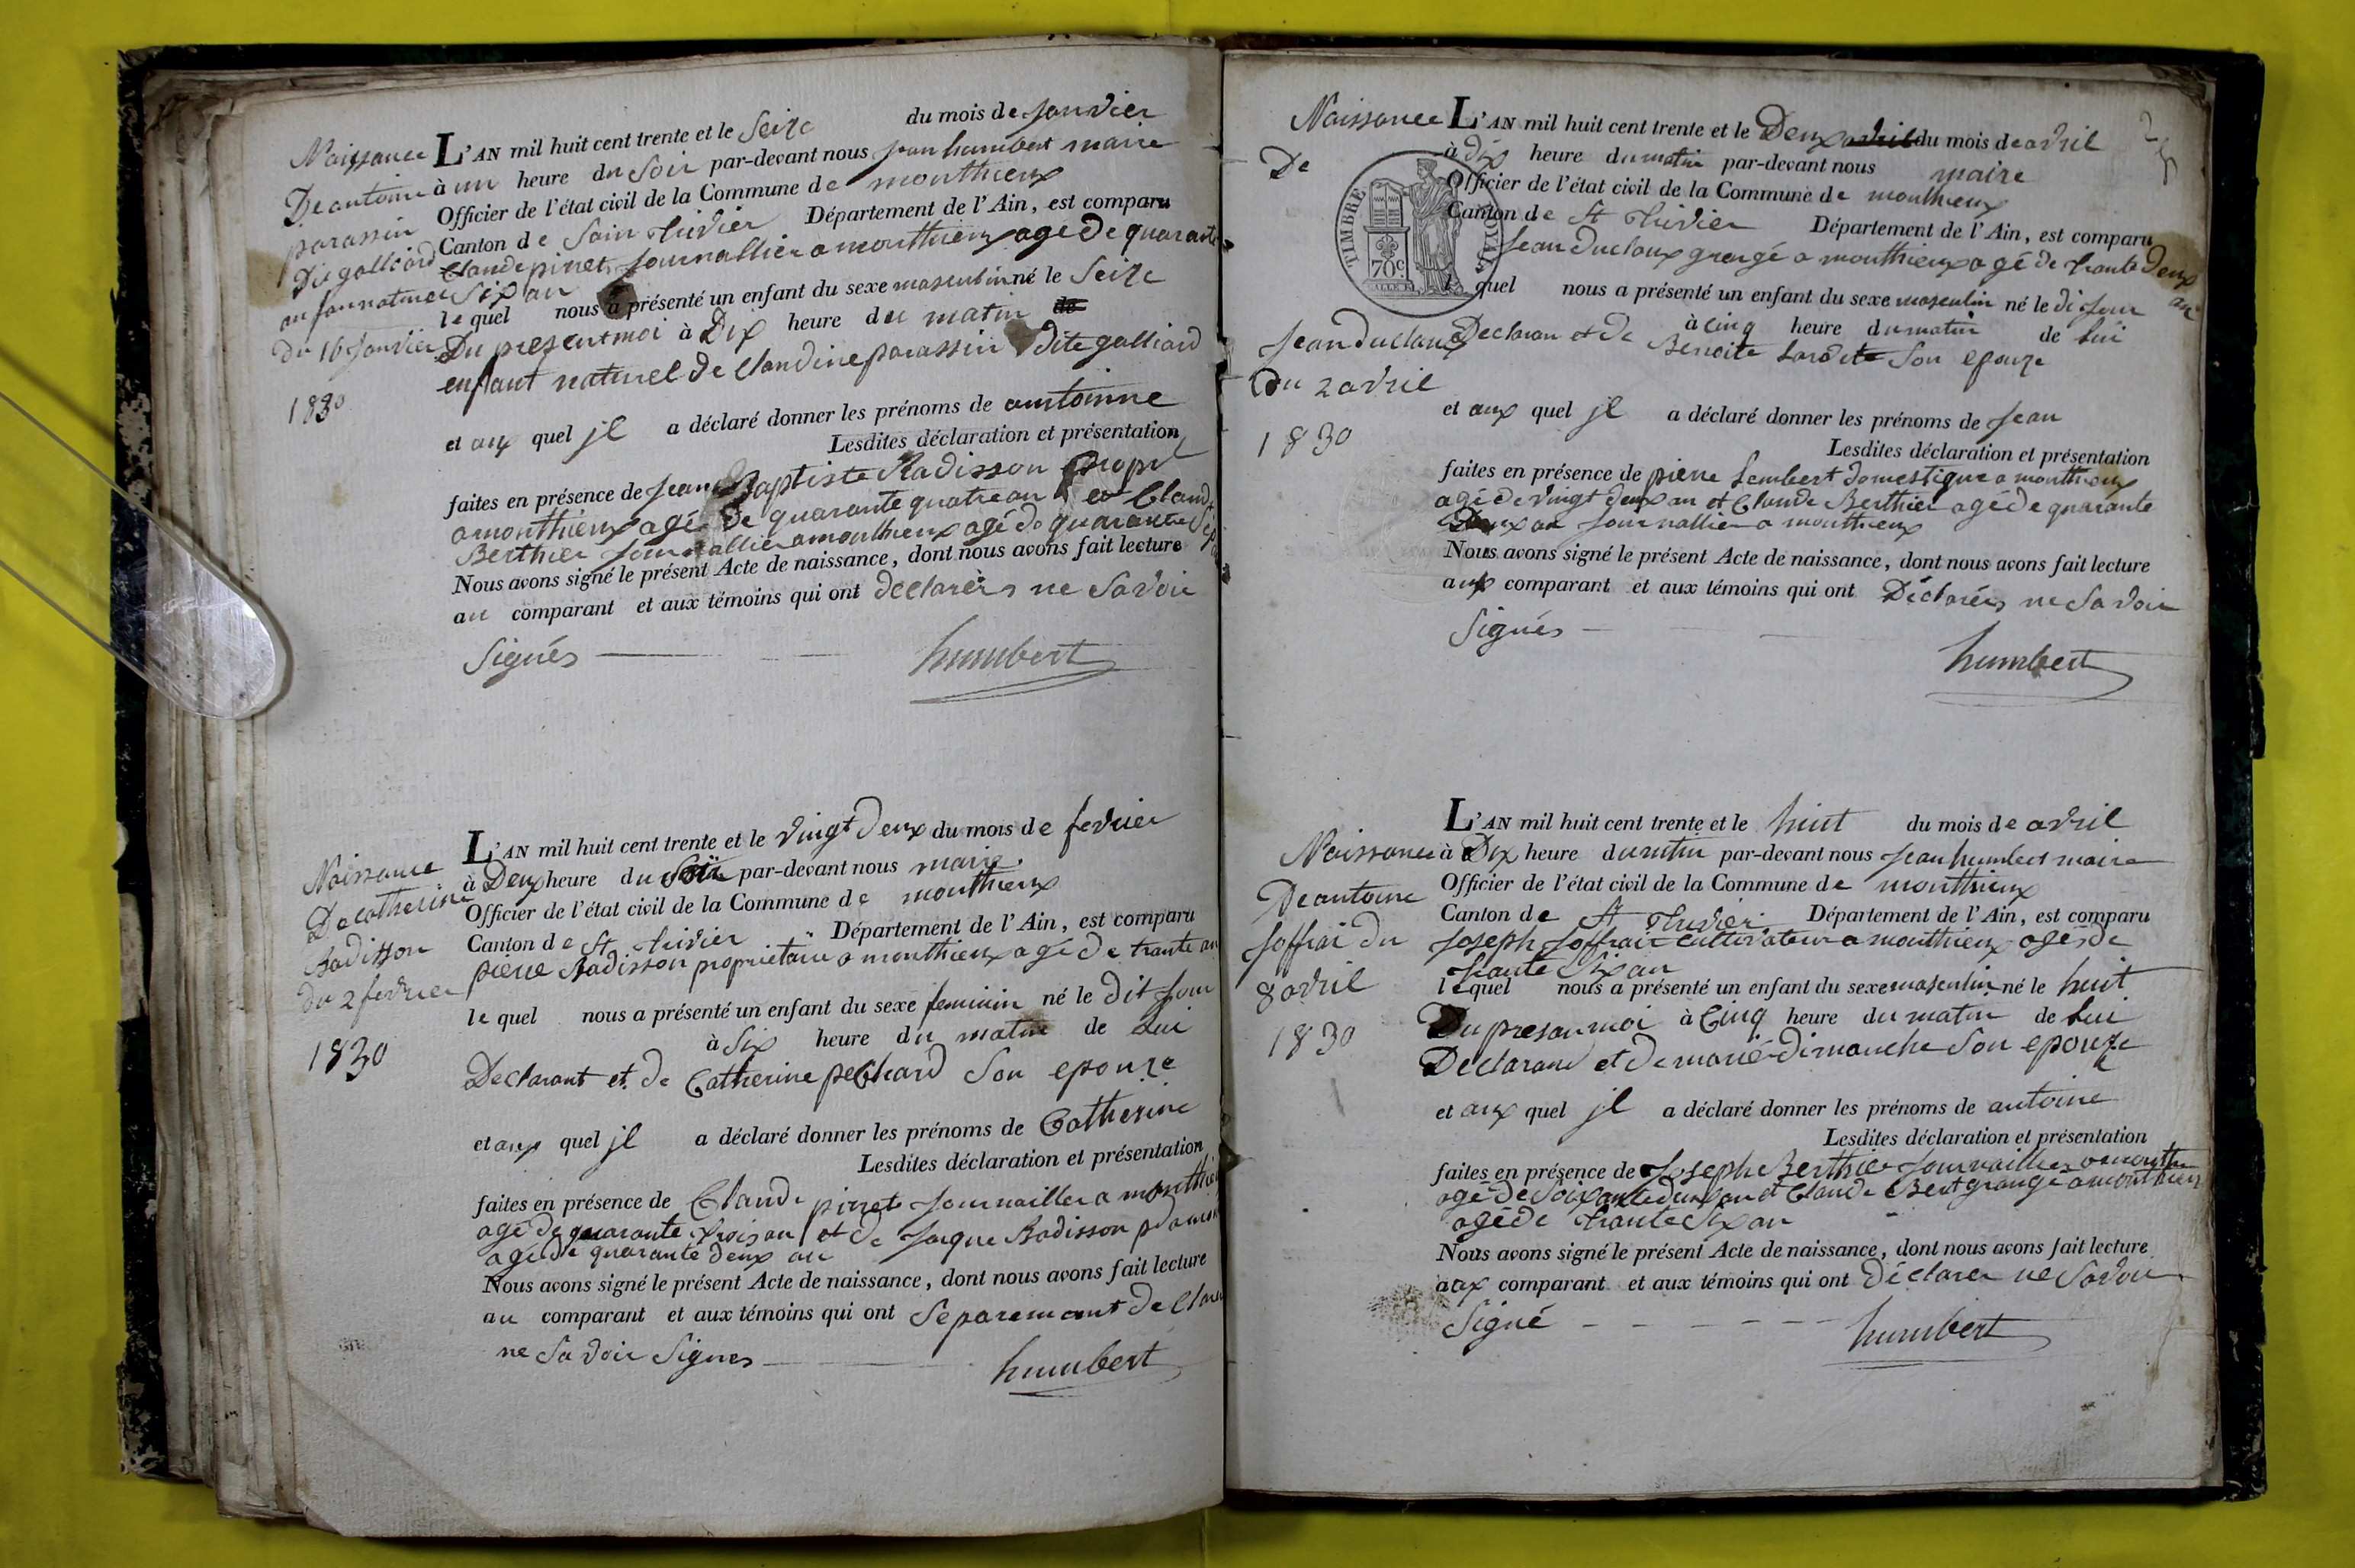 Naissance
De antoine
parassin
Die galliard
enfan naturel
du 16 janvier
1830
L'AN mil huit cent trente et le Seize du mois de janvier
à un heure du Soir par-devant nous jean humbert maire
Officier de l'état civil de la Commune de monthieux
Canton de Sain trivier Département de l'Ain, est comparu
Claude pinet journallier a monthieux agé de quarante
Six an
le quel nous a présenté un enfant du sexe masculin né le Seize
Du present moi à Dix heure du matin de
enfant naturel de Claudine parassin dite galliard
et aux quel jl a déclaré donner les prénoms de antoinne
Lesdites déclaration et présentation
faites en présence de jean Baptiste Radisson propri
a monthieux agé de quarante quatre an et Claude
Berthier journallier a monthieux agé de quarante
Nous avons signé le présent Acte de naissance, dont nous avons fait lecture
au comparant et aux témoins qui ont declarérs ne Savoir
Signés
humbert
Naissance
De catherine
Radisson
du 2 fevrier
1830
L'AN mil huit cent trente et le vingt deux du mois de fevrier
à Deux heure du Soir par-devant nous maire
Officier de l'état civil de la Commune de monthieux
Canton de St trivier Département de l'Ain, est comparu
pierre Radisson proprietaire a monthieux agé de trante an
le quel nous a présenté un enfant du sexe feminin né le dit jour
à Six heure du matin de Lui
Declarant et de Catherine pechard Son epouze
et aux quel jl a déclaré donner les prénoms de Catherine
Lesdites déclaration et présentation
faites en présence de Claude pinet journaillier a monthieu
agé de quarante trois an et de jaque Radisson
agé de quarante deux an
Nous avons signé le présent Acte de naissance, dont nous avons fait lecture
au comparant et aux témoins qui ont Separemant declare
ne Savoir Signes
humbert
25
Naissance
De
Jean duclaux
du 2 avril
1830
TIMBRE ROYAL
70c
L'AN mil huit cent trente et le Deux avril du mois de avril
à dix heure du matin par-devant nous maire
Officier de l'état civil de la Commune de monthieux
Canton de St trivier Département de l'Ain, est comparu
Jean duclaux grangé a monthieux agé de trante Deux
an
l quel nous a présenté un enfant du sexe masculin né le di jour
à cinq heure du matin de Lui
Declaran et de Benoite Lardete Son epouze
et aux quel jl a déclaré donner les prénoms de jean
Lesdites déclaration et présentation
faites en présence de pierre Lembert domestique a monthieux
agé de vingt deux an et Claude Berthier agé de quarante
Deux an journallier a monthieux
Nous avons signé le présent Acte de naissance, dont nous avons fait lecture
aux comparant et aux témoins qui ont Déclarérs ne Savoir
Signés
humbert
Naissance
De antoine
joffrai du
8 avril
1830
L'AN mil huit cent trente et le huit du mois de avril
à Dix heure du matin par-devant nous jean humbert maire
Officier de l'état civil de la Commune de monthieux
Canton de St trivier Département de l'Ain, est comparu
Joseph joffrair cultivateur a monthieux agés de
trante Six an
le quel nous a présenté un enfant du sexe masculin né le huit
Du presan moi à Cinq heure du matin de Lui
Declarand et de marie dimanche Son epouze
et aux quel jl a déclaré donner les prénoms de antoine
Lesdites déclaration et présentation
faites en présence de Joseph Berthier journaillier a month
agé de Soixante deux an et Claude Bert grangé a monthieux
agé de trante Six an
Nous avons signé le présent Acte de naissance, dont nous avons fait lecture
aux comparant et aux témoins qui ont déclarer ne Savoir
Signé
humbert